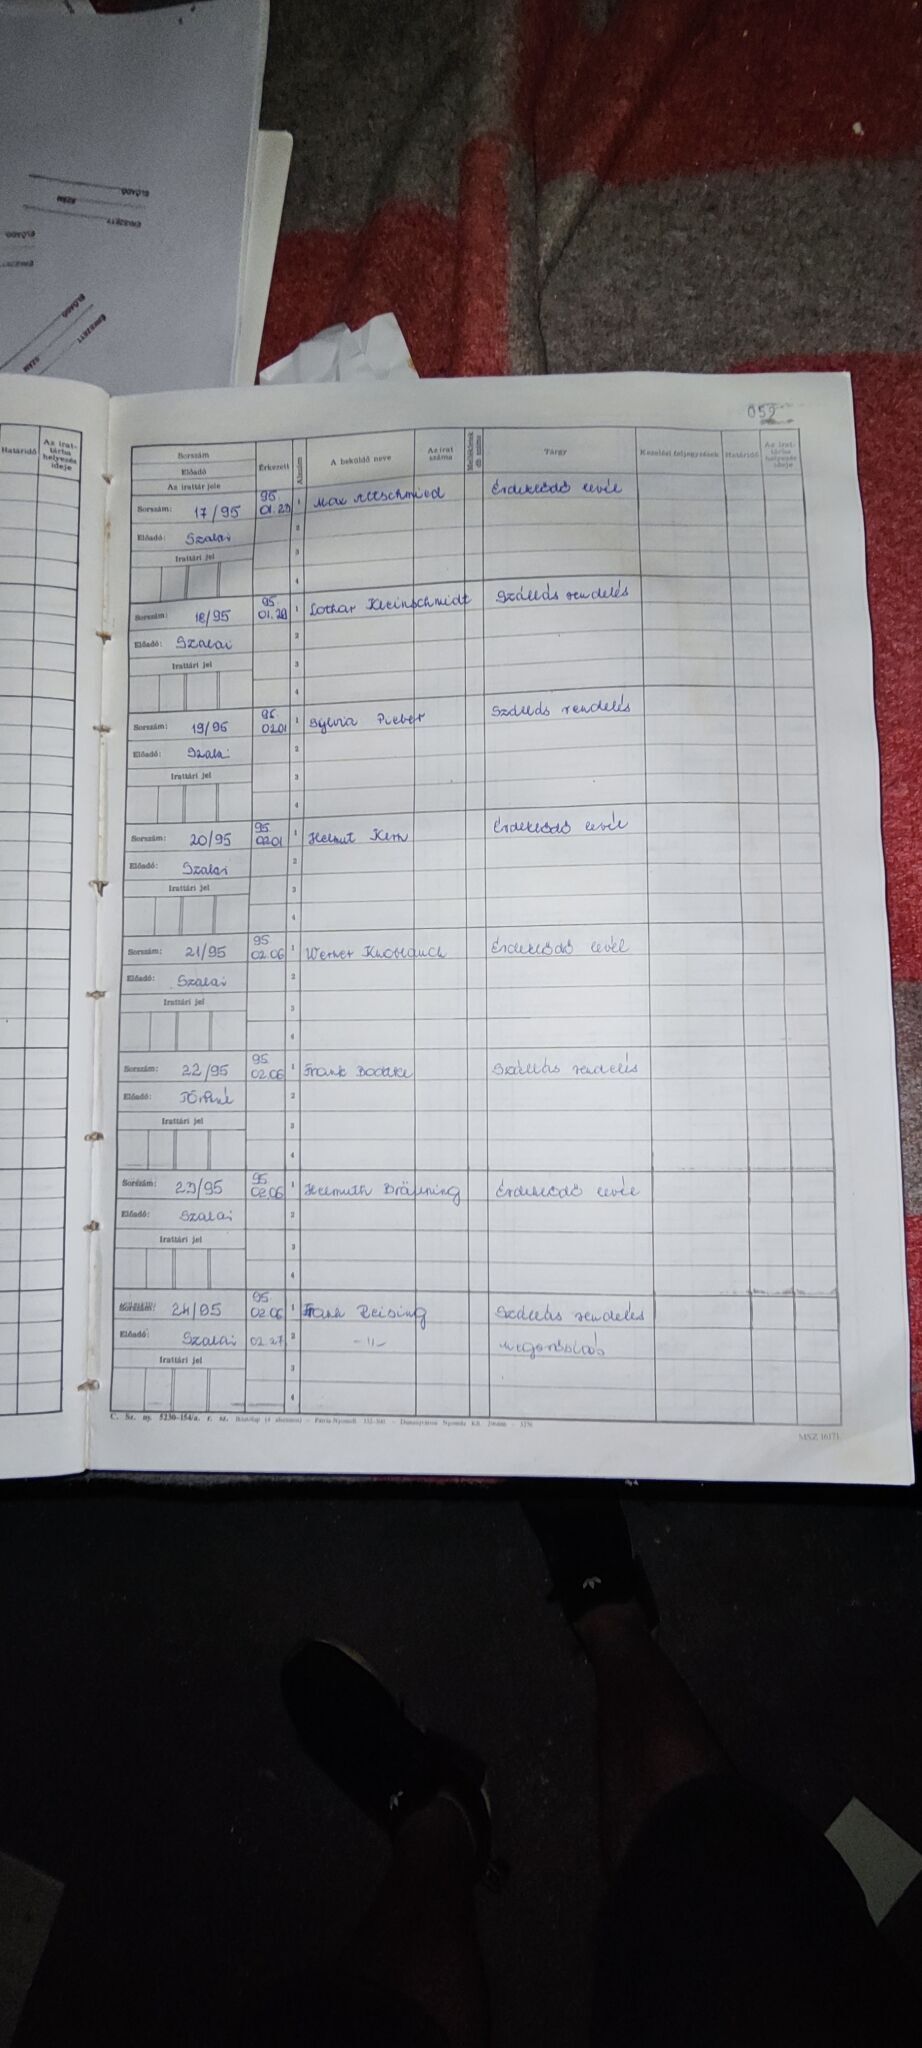 ELŐADÓ
SZÁM
ÉRKEZETT
ELŐADÓ
ÉRKEZETT
ELŐADÓ
ÉRKEZETT
SZÁM
052
Határidő Az irat-tárba helyezés ideje
Sorszám Érkezett Alszám A beküldő neve Az irat száma Mellékletek db száma Tárgy Kezelési feljegyzések Határidő Az irat-tárba helyezés ideje
Előadó
Az irattár jele
Sorszám: 17/95 95 01.23 1 Max Altschmied Érdeklődő levél
Előadó: Szalai 2
Irattári jel 3
4
Sorszám: 18/95 95. 01.28 1 Lothar Kleinschmidt Szállás rendelés
Előadó: Szalai 2
Irattári jel 3
4
Sorszám: 19/95 95. 02.01 1 Sylvia Pieber Szállás rendelés
Előadó: Szalai 2
Irattári jel 3
4
Sorszám: 20/95 95. 02.01 1 Helmut Kern Érdeklődő levél
Előadó: Szalai 2
Irattári jel 3
4
Sorszám: 21/95 95 02.06 1 Werner Knoblauch Érdeklődő levél
Előadó: Szalai 2
Irattári jel 3
4
Sorszám: 22/95 95 02.06 1 Frank Szállás rendelés
Előadó: 2
Irattári jel 3
4
Sorszám: 23/95 95 02.06 1 Helmuth Bräuning Érdeklődő levél
Előadó: Szalai 2
Irattári jel 3
4
Sorszám: 24/95 95 02.06 1 Frank Reising Szállás rendelés
Előadó: Szalai 02.27 2 -"- megrendelés
Irattári jel 3
4
C. Sz. ny. 5230-154/a. r. sz.
MSZ 16171